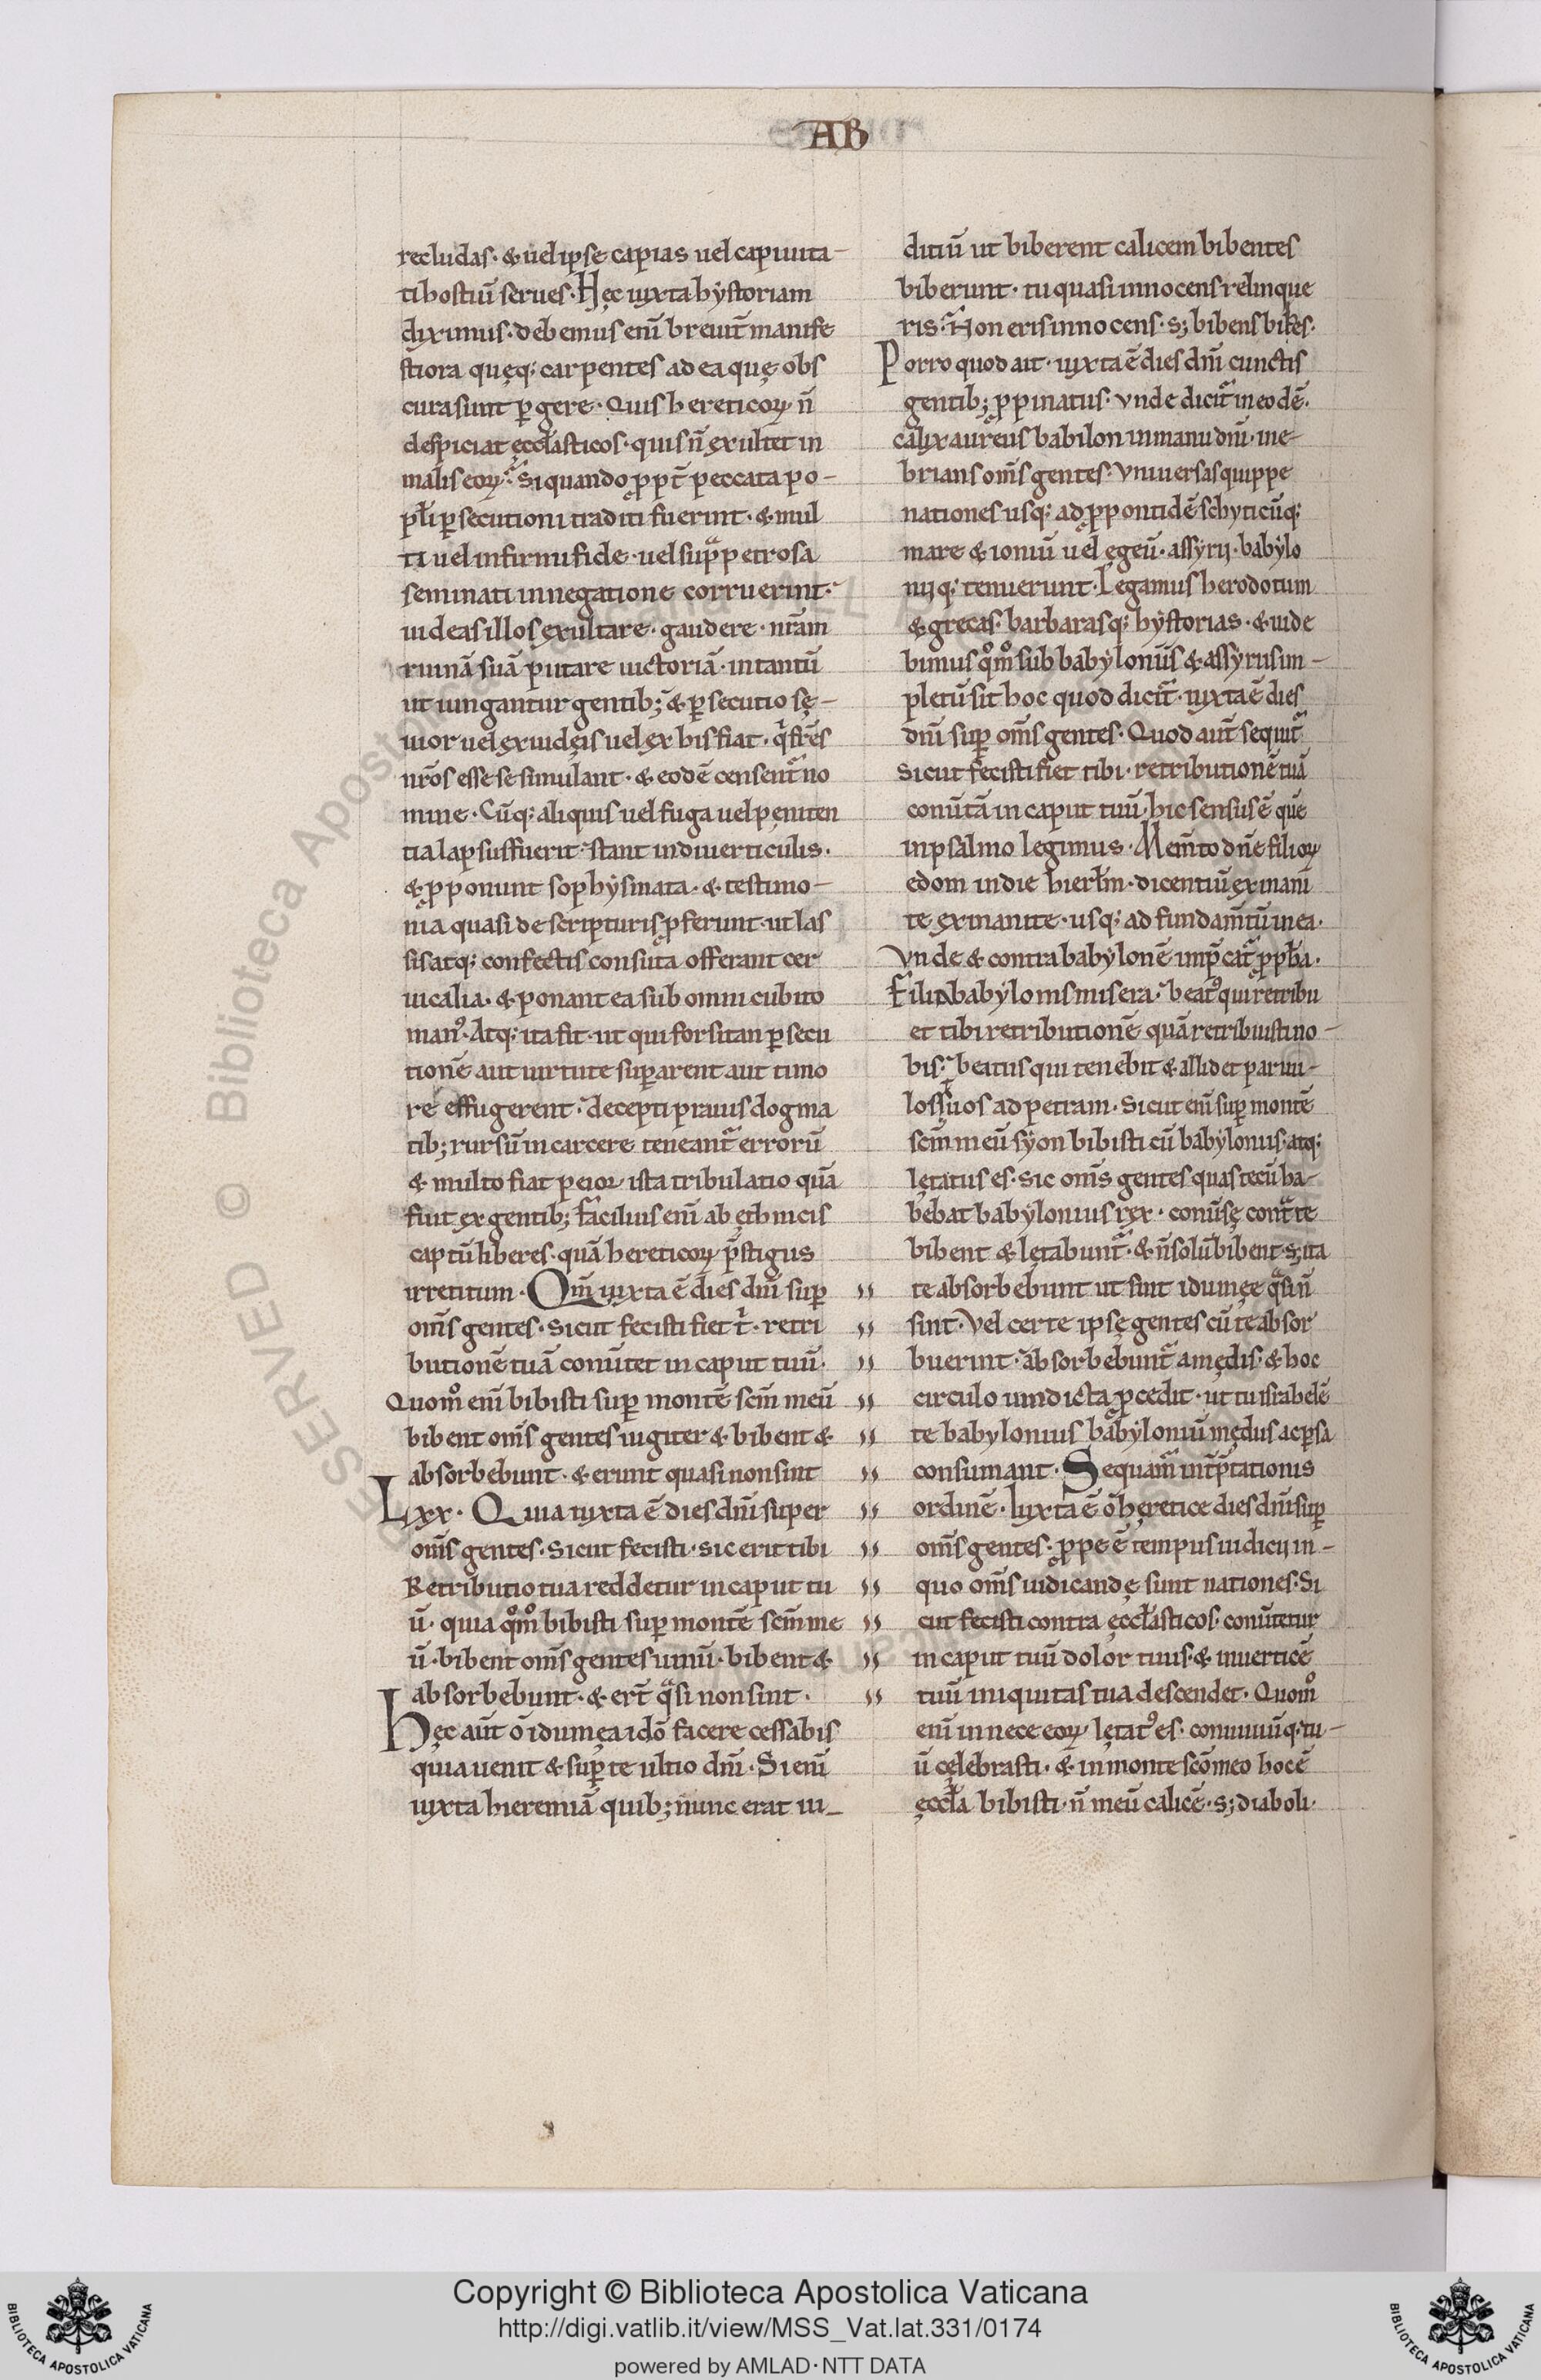 AB
recludas· & uel ipse capias uel captiuita-
ti hostiū serues· Hęc iuxta hystoriam
diximus· debemus enī breuit̄ manife
stiora quęq; carpentes ad ea quę obs
cura sunt ꝑgere· Quis hereticoꝝ n̄
despiciat ęccl̄asticos· quis n̄ exultet in
malis eoꝝ· si quando ꝓpt̄ peccata po-
pl̄i ꝑsecutioni traditi fuerint· & mul
ti uel infirmi fide· uel supᷓ petrosa
seminati in negatione corruerint·
uideas illos exultare· gaudere· nr̄am
ruinā suā putare uictoriā· in tantū
ut iungantur gentib; & ꝑsecutio sę-
uior uel ex iudęis uel ex his fiat· q̇ fr̄es
nr̄os esse se simulant· & eodē censent᷑ no
mine· Cūq; aliquis uel fuga uel peniten
tia lapsus fuerit· stant in diuerticulis·
& ꝓponunt sophysmata· & testimo-
nia quasi de scripturis ꝓferunt· ut las
sis atq; confectis consuta offerant cer
uicalia· & ponant ea sub omni cubito
manꝰ· Atq; ita fit· ut qui forsitan ꝑsecu
tionē aut uirtute suꝑarent aut timo
re effugerent· decepti prauis dogma
tib; rursū in carcere teneant᷑ errorū
& multo fiat peior ista tribulatio quā
fuit ex gentib; facilius enī ab ęthnicis
captū liberes· quā hereticoꝝ p̄stigiis
irretitum· Qm̄ iuxta ē dies dn̄i suꝑ
om̄s gentes· Sicut fecisti fiet ṫ· retri
butionē tuā conūtet in caput tuū·
Quom̊ enī bibisti suꝑ montē scm̄ meū
bibent om̄s gentes iugiter & bibent &
absorbebunt· & erunt quasi non sint
Lxx· Quia iuxta ē dies dn̄i super
om̄s gentes· Sicut fecisti· sic erit tibi
Retributio tua reddetur in caput tu
ū· quia qm̊ bibisti suꝑ montē scm̄ me
ū· bibent om̄s gentes uinū· bibent &
absorbebunt· & er̄t qᷓsi non sint·
Hęc aūt o idumęa idō facere cessabis
quia uenit & suꝑ te ultio dn̄i· Si enī
iuxta hieremiā quib; nunc erat iu-
ditiū ut biberent calicem bibentes
biberunt· tu quasi innocens relinque
ris· Non eris innocens· s; bibens bibes·
Porro quod ait· iuxta ē dies dn̄i cunctis
gentib; ꝓpinatus· Vnde dicit᷑ in eodē·
calix aureus babilon in manu dn̄i· ine-
brians om̄s gentes· Vniuersas quippe
nationes usq; ad ꝓpontidē schyticūq;
mare & ioniū uel ęgeū· assyrij· babylo
nijq; tenuerunt· Legamus herodotum
& grecas· barbarasq; hystorias· & uide
bimus qm̊ sub babyloniis & assyriis im-
pletū sit hoc quod dicit᷑· iuxta ē dies
dn̄i suꝑ om̄s gentes· Quod aūt sequit᷑·
Sicut fecisti fiet tibi· retributionē tuā
conūtā in caput tuū· hic sensus ē quē
in psalmo legimus· Mem̄to dn̄e filioꝝ
edom in die hierl̄m· dicentiū exinani
te exinanite· usq; ad fundam̄tū in ea·
Vnde & contra babylonē imp̄cat᷑ ꝓph̄a·
Filia babylonis misera· beatꝰ qui retribu
et tibi retributionē quā retribuisti no-
bis· beatus qui tenebit & allidet paruu-
los suos ad petram· Sicut enī suꝑ montē
scm̄ meū syon bibisti cū babyloniis· atq;
lętatus es· Sic om̄s gentes quas tecū ha-
bebat babylonius rex· conūsę contᷓ te
bibent & lętabunt᷑· & n̄ solū bibent· s; ita
te absorbebunt ut sint idumęe qᷓsi n̄
sint· Vel certe ipsę gentes cū te absor
buerint· absorbebunt᷑ a mędis· & hoc
circulo uindicta ꝓcedit· ut tu israhelē
te babylonius babyloniū mędus ac ꝑsa
consumant· Sequam᷑ int̄p̄tationis
ordinē· Iuxta ē o hęretice dies dn̄i suꝑ
om̄s gentes· ꝓpe ē tempus iudicij in-
quo om̄s iudicandę sunt nationes· Si
cut fecisti contra ęccl̄asticos· conūtetur
in caput tuū dolor tuus· & in uerticē
tuū iniquitas tua descendet· Quom̊
enī in nece eoꝝ lętatꝰ es· conuiuiūq; tu-
ū cęlebrasti· & in monte scō meo hoc ē
ęccl̄a bibisti· n̄ meū calicē· s; diaboli·
© Biblioteca Apostolica Vaticana
Copyright © Biblioteca Apostolica Vaticana
http://digi.vatlib.it/view/MSS_Vat.lat.331/0174
powered by AMLAD·NTT DATA
BIBLIOTECA APOSTOLICA VATICANA
BIBLIOTECA APOSTOLICA VATICANA